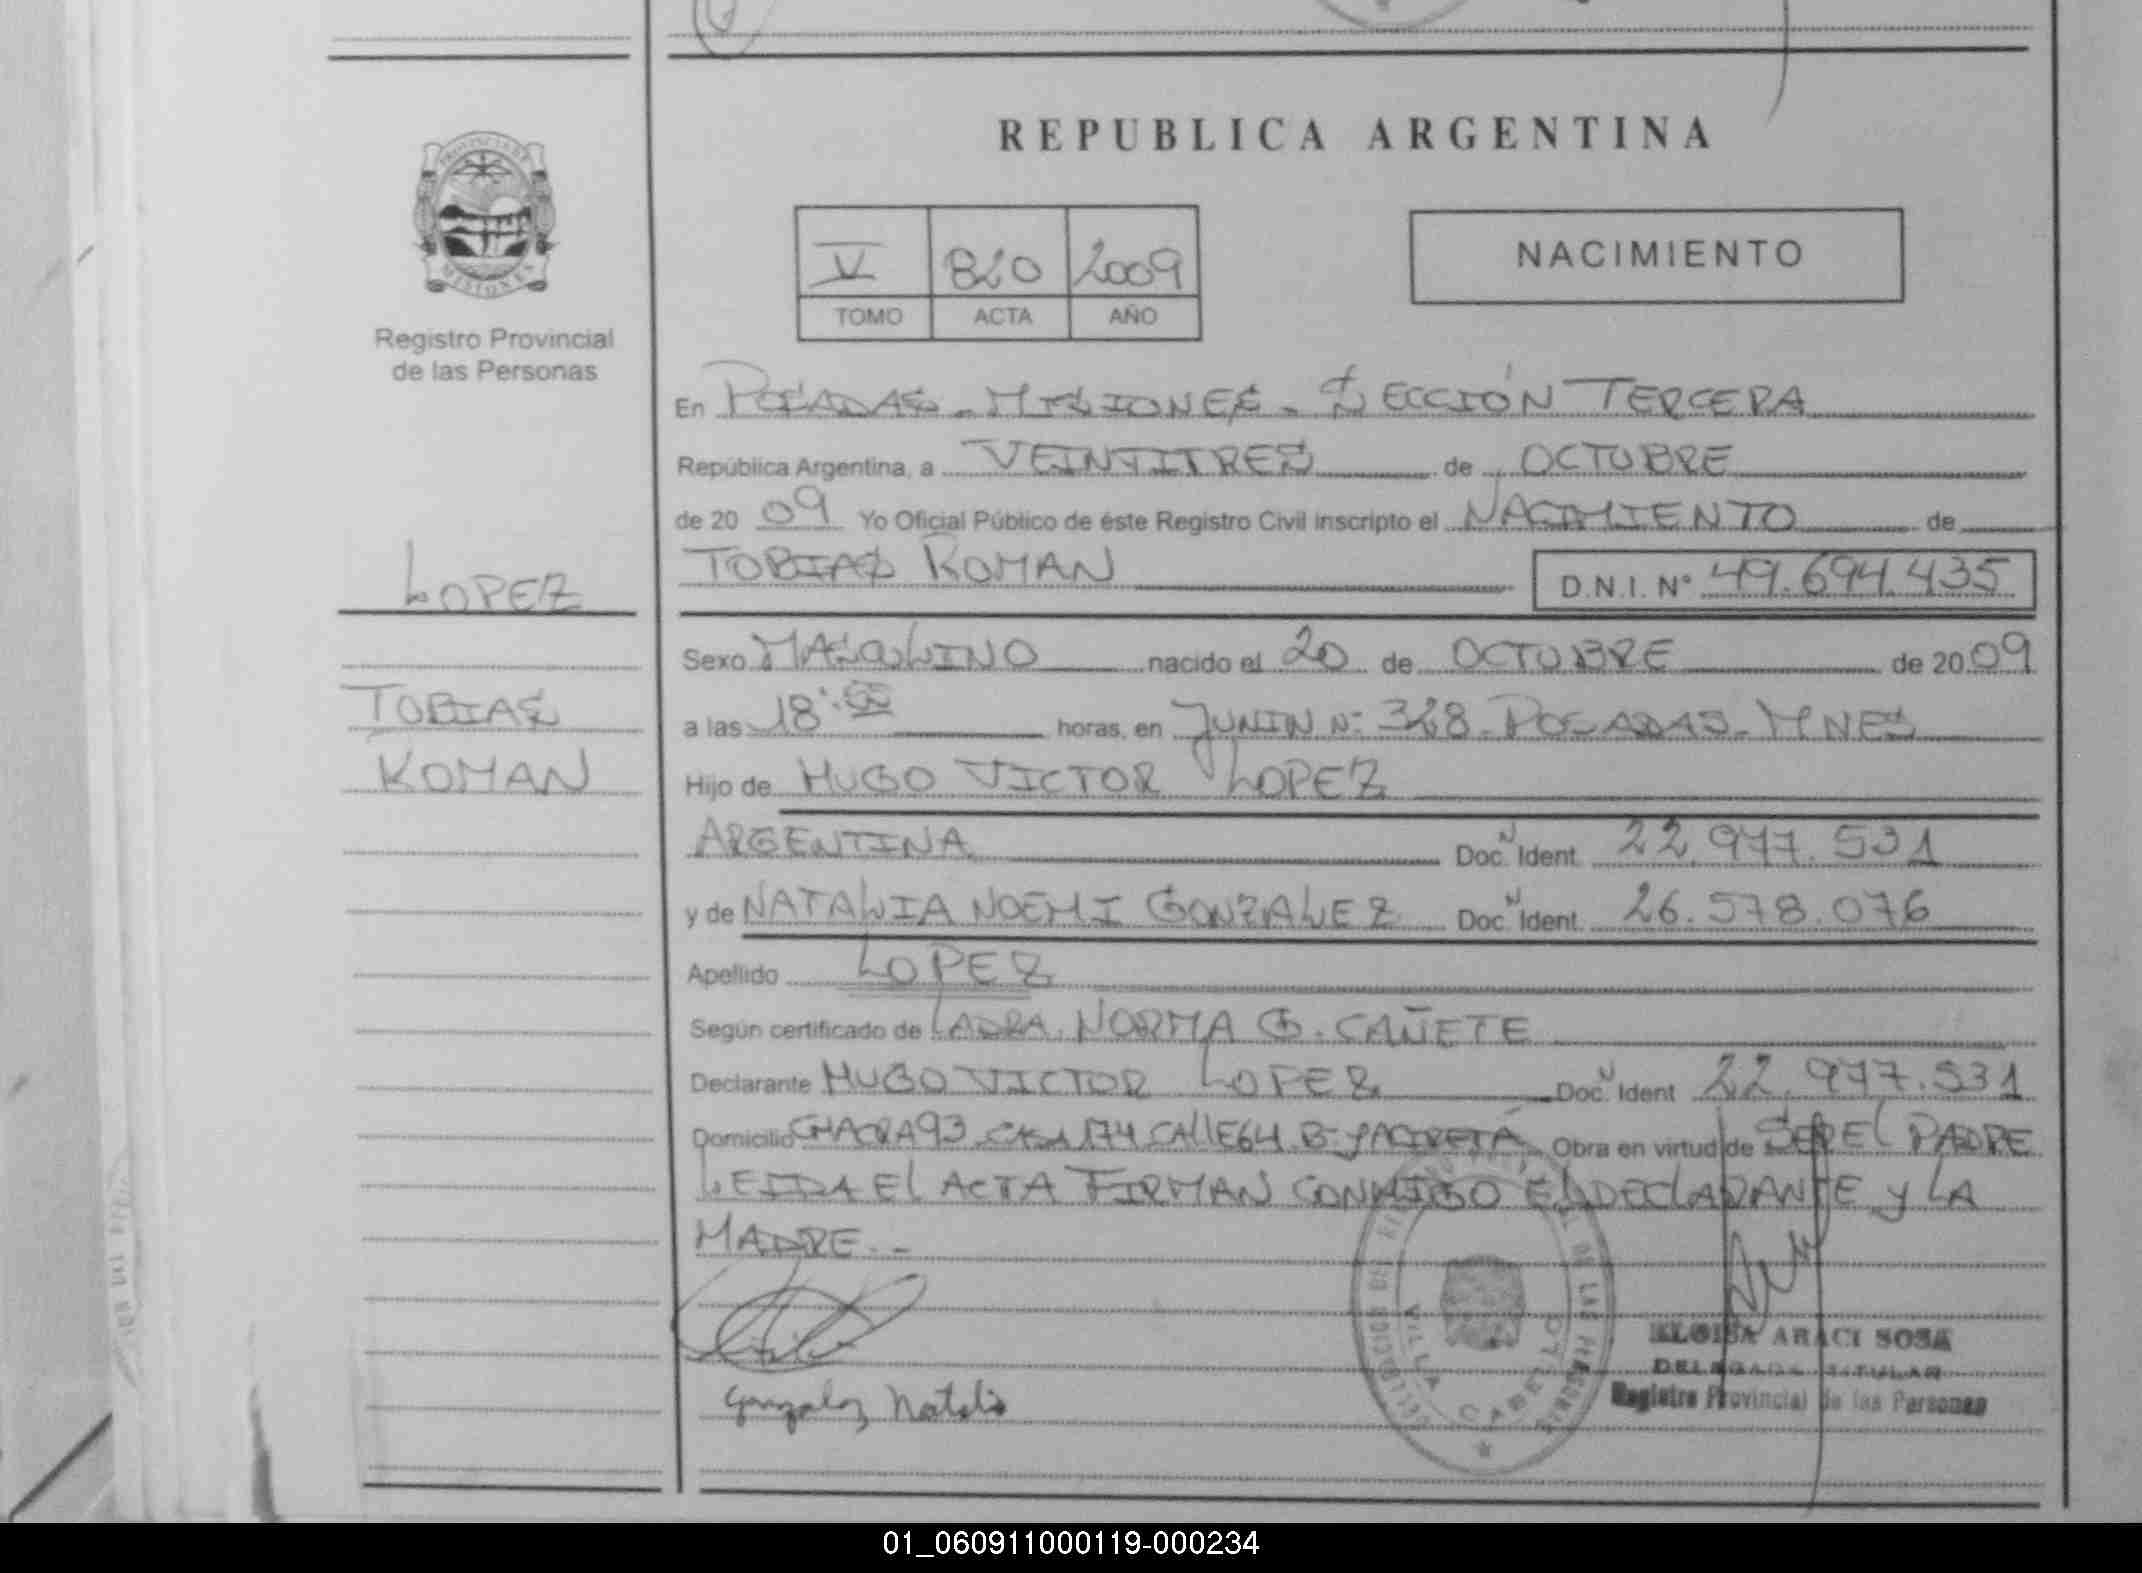 REPUBLICA ARGENTINA
PROVINCIA DE
MISIONES
Registro Provincial
de las Personas
V 820 2009
TOMO ACTA AÑO
NACIMIENTO
En POSADAS - MISIONES - SECCIÓN TERCERA
República Argentina, a VEINTITRES de OCTUBRE
de 20 09 Yo Oficial Público de éste Registro Civil inscripto el NACIMIENTO de
LOPEZ
TOBIAS ROMAN D.N.I. N° 49.694.435
Sexo MASCULINO nacido el 20 de OCTUBRE de 20 09
TOBIAS
a las 18:00 horas, en JUNIN N: 328 - POSADAS - MNES
ROMAN
Hijo de HUGO VICTOR LOPEZ
ARGENTINA Doc. Ident. 22.977.531
y de NATALIA NOEMI GONZALEZ Doc. Ident. 26.578.076
Apellido LOPEZ
Según certificado de LA DRA. NORMA G. CAÑETE
Declarante HUGO VICTOR LOPEZ Doc. Ident 22.977.531
Domicilio CHACRA 93 CASA 174 CALLE 64 B- YACIRETÁ Obra en virtud de SER EL PADRE
LEIDA El ACTA FIRMAN CONMIGO EL DECLARANTE y LA
MADRE. -
Gonzalez Natalia
VILLA CABELLO
ELOISA ARACI SOSA
DELEGADA TITULAR
Registro Provincial de las Personas
01_060911000119-000234